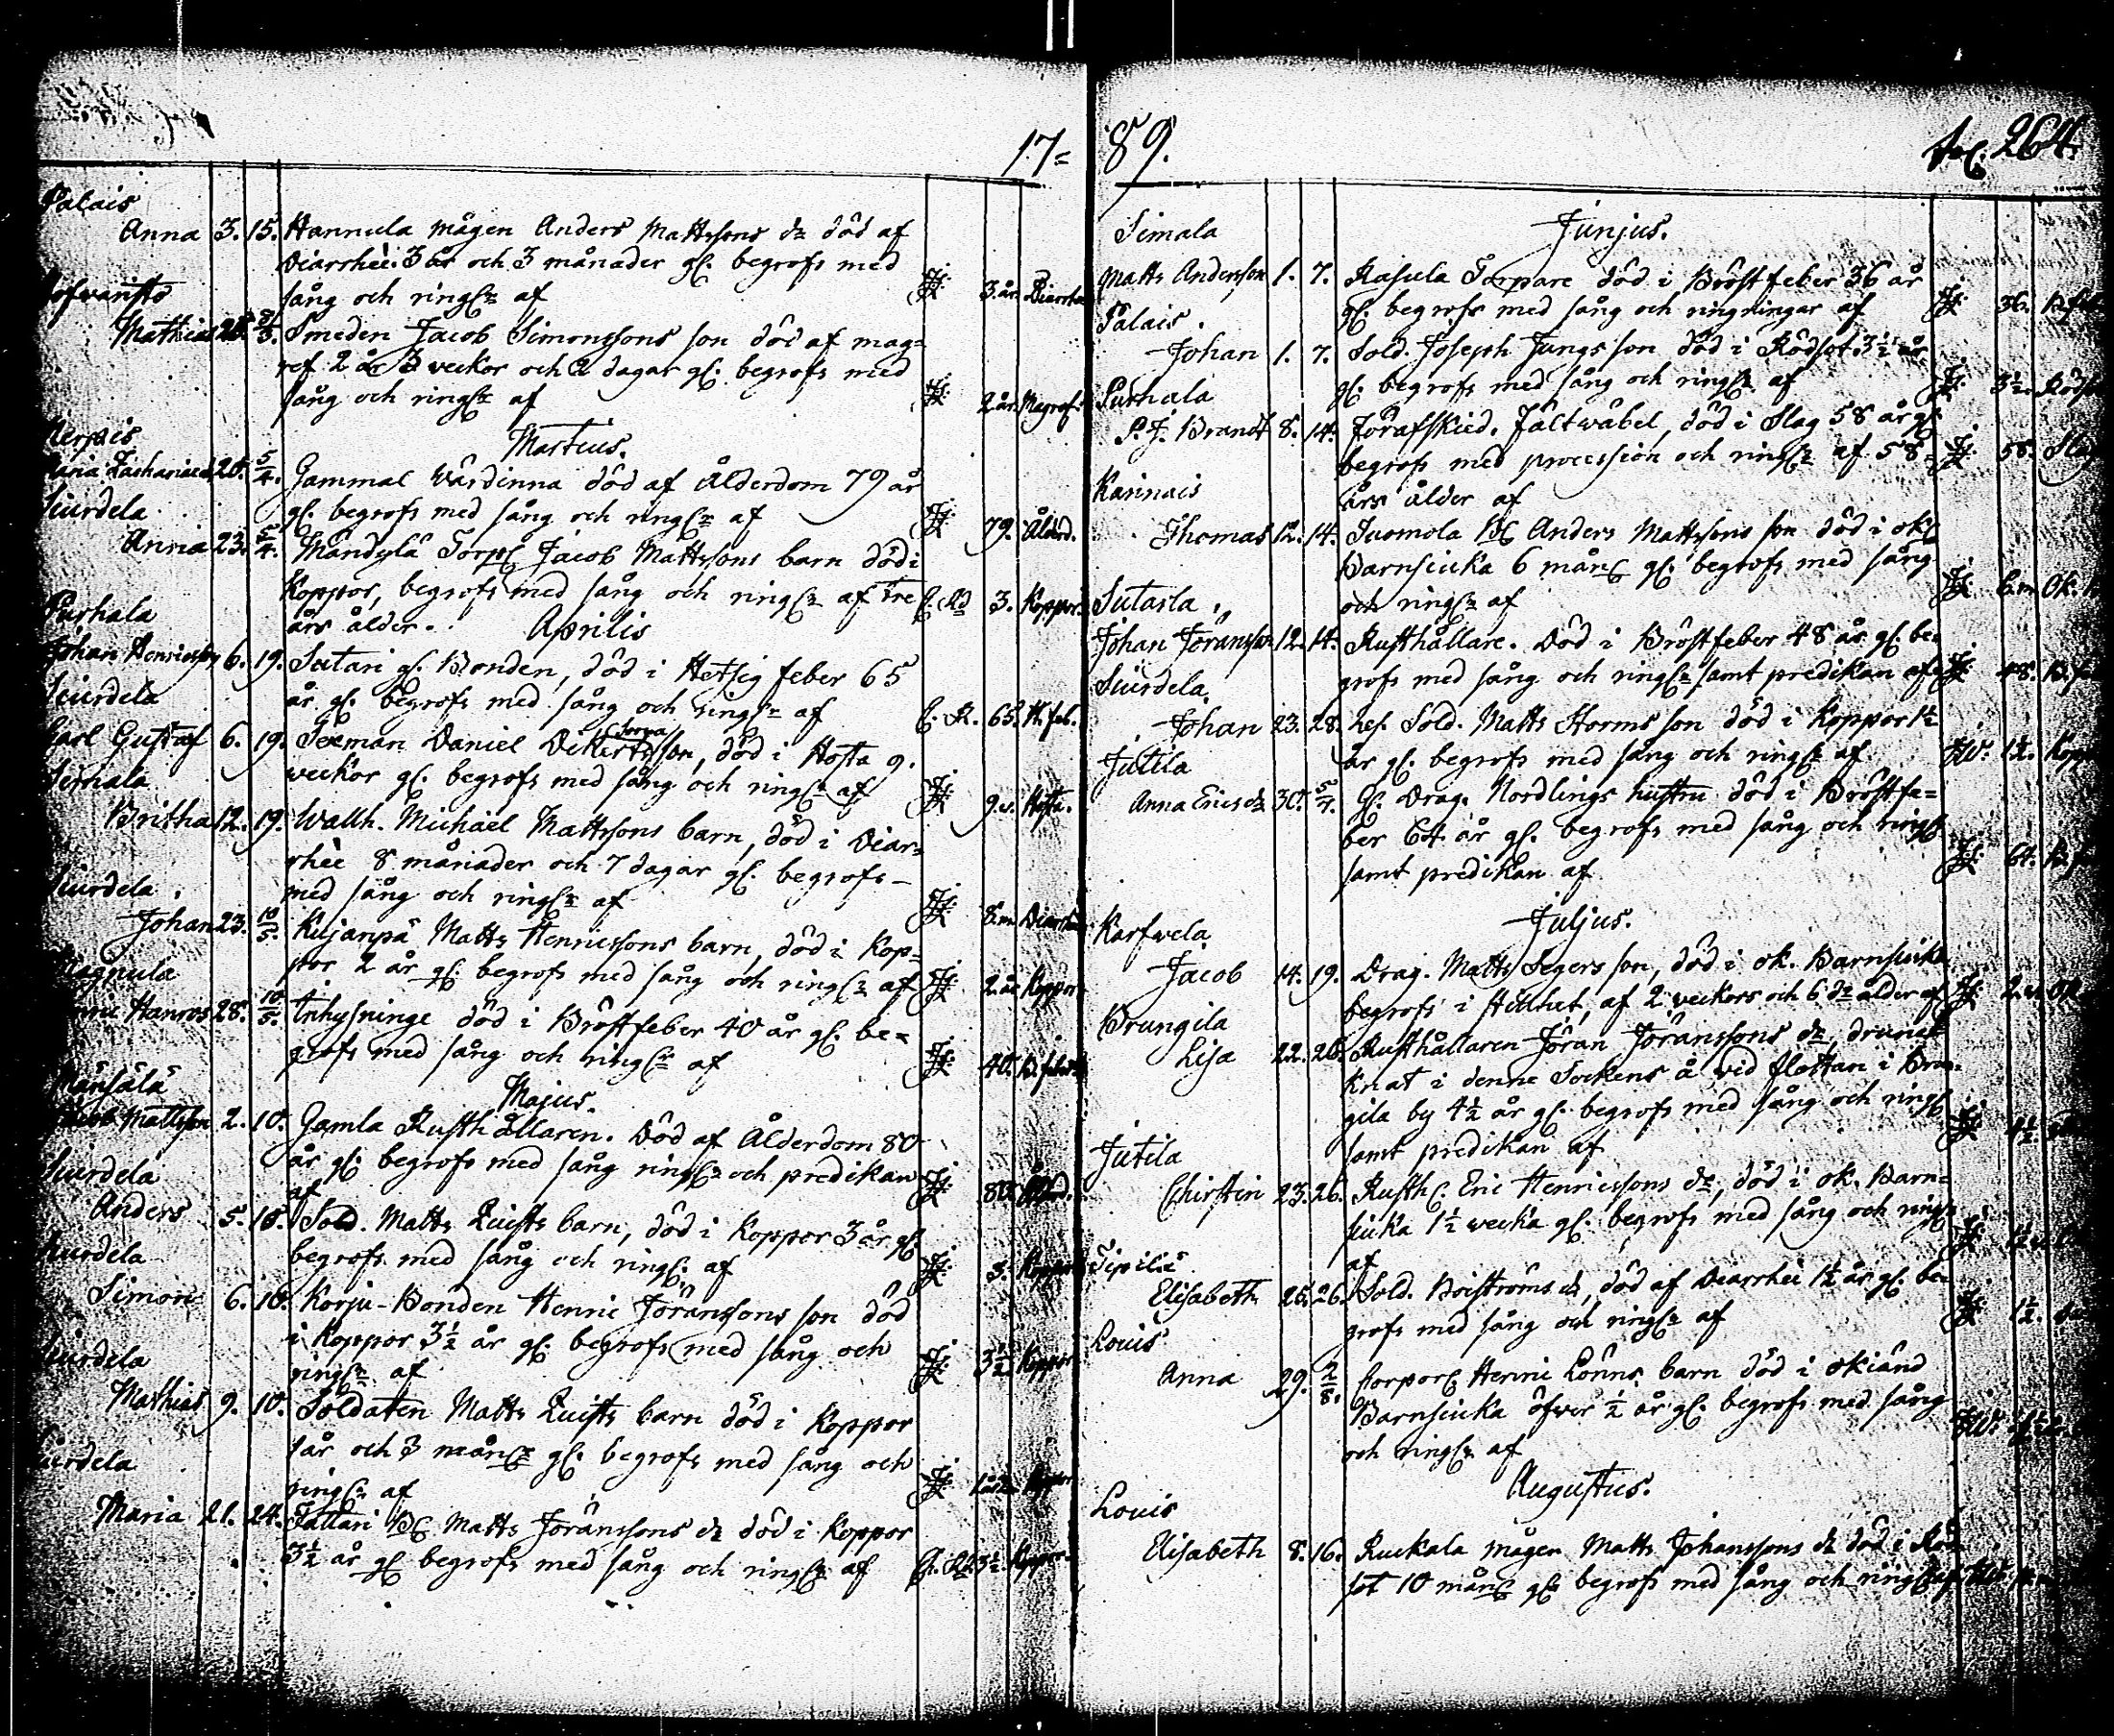 17=
Palais
Anna 3. 15. Hannula mågen Anders Mattssons dr död af
Diarrhéé. 3 år och 3 månader gl. begrofs med
sång och ringr af 3. år. Diarrh
Mathias 3. Smeden Jacob Simonssons son död af mag=
ref 2 år 3 veckor och 2 dagar gl. begrofs med
sång och ringr af 2 år. Magref.
Martius.
Maria Zachariæd. 25. 5/4. Gammal Värdinna död af Ålderdom 79 år
gl. begrofs med sång och ringr af 79. Ålderd.
Siurdela
Anna 23. 5/4. Mändylä Torp Jacob Mattssons barn död i
Koppor, begrofs med sång och ringr af tre 3. Koppor.
års ålder.
Purhala
Aprilis
Johan Henricsson 6. 19. Sutari gl. Bonden, död i Hetsig feber 65
år gl. begrofs med sång och ringr af 65. H. feb.
Siurdela
Carl Gustaf 6. 19. Seeman Daniel son, död i Hosta 9.
veckor gl. begrofs med sång och ringr af 9. v. Hosta.
Simala
Britha 12. 19. Wallh. Michaël Mattssons barn, död i Diar=
rhéé 8 månader och 7 dagar gl. begrofs
med sång och ringr af 8. m. Diarrh
Siurdela
Johan 23. 10/5. Kujanpä Matts Henricssons barn, död i Kop=
por 2 år gl. begrofs med sång och ringr af 2 år Koppor
Hanros 28. 10/5. Inhysninge död i Bröstfeber 40 år gl. be=
grofs med sång och ringr af 40. Br. feber
Majus.
Mansälä
Mattsson 2. 10. Gamla Rusthållaren. Död af Ålderdom 80
år gl. begrofs med sång ringr och predikan
af 80. Ålderd.
Siurdela
Anders 5. 10. Sold. Matts Quists barn, död i Koppor 3 år gl.
begrofs med sång och ringr af 3. Koppor
Siurdela
Simon 6. 10. Korju-Bonden Henric Jöranssons son död
i Koppor 3½ år gl. begrofs med sång och
ringr af 3½ Koppor
Siurdela
Mathias 9. 10. Soldaten Matts Quists barn död i Koppor
1 år och 3 mån gl. begrofs med sång och
ringr af
Siurdela
Maria 21. 24. Jallari Matts Jöranssons dr död i Koppor
3½ år gl. begrofs med sång och ringr af 3½. Koppor.
89. 264.
Simala
Junjus.
Matts Andersson 1. 7. Rasula Torpare död i Bröstfeber 36 år
gl. begrofs med sång och ringningar af 36.
Palais.
Johan 1. 7. Sold. Joseph Jungs son död i Rödsot. 3½ år
gl. begrofs med sång och ringr af 3½
Purhala
P. J. Brandt 8. 14. Förafskied. Fältwäbel, död i Slag 58 år gl.
begrofs med procession och ringr af 58 58. Slag
års ålder af
Karinais
Thomas 12. 14. Suomola Anders Mattssons son död i ok.
Barnsiuka 6 mån gl. begrofs med sång
och ringr af 6. m. Ok.
Sutarla
Johan Jöransson 12. 14. Rusthållare. Död i Bröstfeber 48 år gl. be=
grofs med sång och ringr samt predikan af 48. B. feb
Siurdela
Johan 23. 28. Sold. Matts Storms son död i Koppor 1½
år gl. begrofs med sång och ringr af 1½. Kopp
Jutila
Anna Ericsdr 30. 5/7. Gl. Drag. Nordlings hustru död i Bröstfe=
ber 64 år gl. begrofs med sång och ring
samt predikan af 64. B. fe
Juljus.
Karfwela
Jacob 14. 19. Drag. Matts Segers son, död i ok. Barnsiuka
begrofs i af 2 veckors och 6 dr ålder af
Brungila
Lisa 22. 26. Rusthållaren Jöran Jöranssons dr, drunk
knat i denne Sockens å vid flottan i Brun=
gila by 4½ år gl. begrofs med sång och ring
samt predikan af 4½
Jutila
Christin 23. 26. Rusth. Eric Henricssons dr, död i ok. Barn=
siuka 1½ vecka gl. begrofs med sång och ring
af
Tipilä
Elisabeth 26. 26. Sold. Boiströms dr, död af Diarrhéé 1½ år gl. be=
grofs med sång och ringr af 1½.
Louis
Anna 29. 2/8. Corpor Henric Lönns barn död i okiänd
Barnsiuka öfwer ½ år gl. begrofs med sång
och ringr af
Augustus.
Louis
Elisabeth 8. 16. Ruckala mågen Matts Johanssons dr död i Röd
sot 10 mån gl. begrofs med sång och ringr af